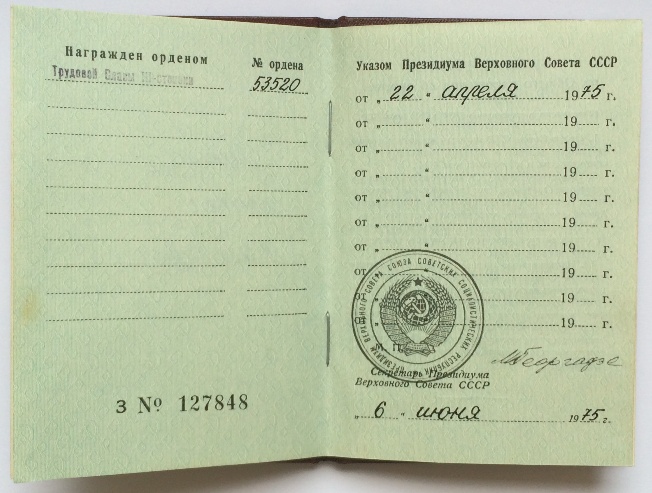 Награжден орденом
№ ордена
Трудовой Славы III степени
53520
З № 127848
Указом Президиума Верховного Совета СССР
от „ 22 “ апреля 1975 г.
от „ “ 19 г.
от „ “ 19 г.
от „ “ 19 г.
от „ “ 19 г.
от „ “ 19 г.
от „ “ 19 г.
от „ “ 19 г.
от „ “ 19 г.
от „ “ 19 г.
ПРЕЗИДИУМ ВЕРХОВНОГО СОВЕТА СОЮЗА СОВЕТСКИХ СОЦИАЛИСТИЧЕСКИХ РЕСПУБЛИК
М. Георгадзе
Секретарь Президиума
Верховного Совета СССР
„ 6 “ июня 1975 г.